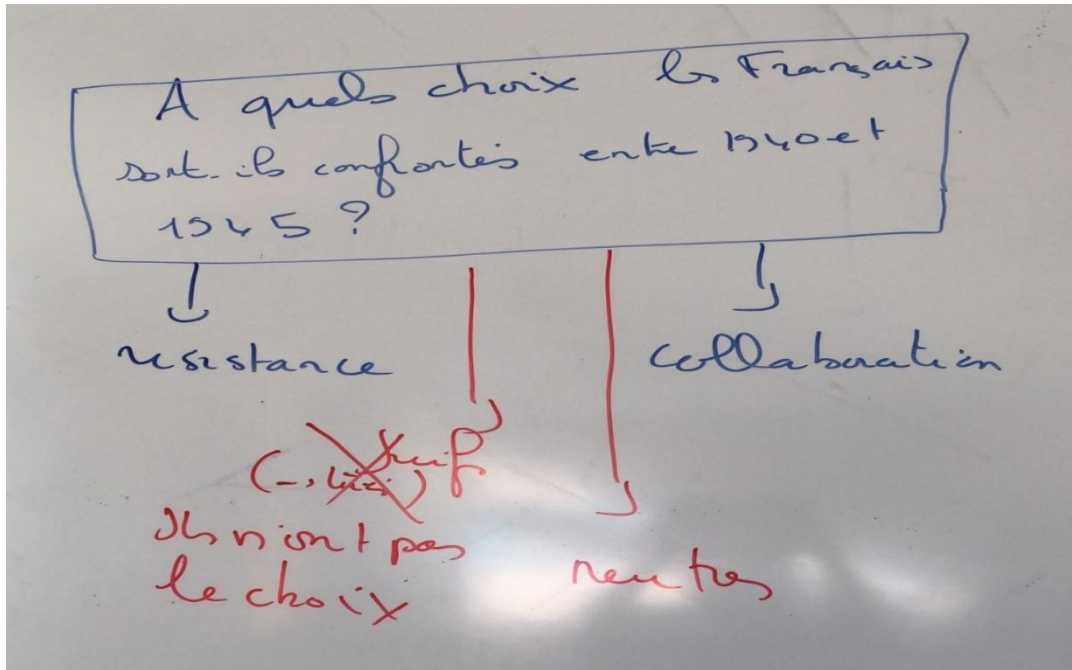 A quels choix les Français
sont-ils confrontés entre 1940 et
1945 ?
resistance
collaboration
Juif
Ils n'ont pas
le choix
neutres